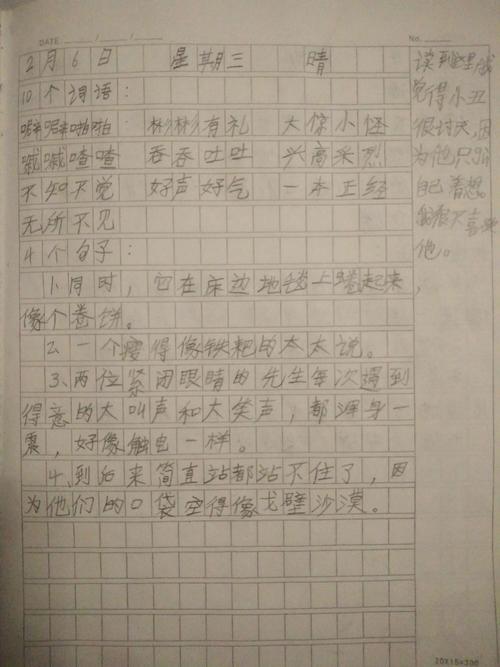 DATE
No.
2月6日 星期三 晴
10个词语:
噼噼啪啪 彬彬有礼 大惊小怪
喊喊喳喳 吞吞吐吐 兴高采烈
不知不觉 好声好气 一本正经
无所不见
4个句子:
1.同时,它在床边地毯上蜷起来,
像个卷饼。
2.一个瘦得像铁耙的太太说。
3、两位紧闭眼睛的先生每次遇到
得意的大叫声和大笑声,都浑身一
震,好像触电一样。
4、到后来简直站都站不住了,因
为他们的口袋空得像戈壁沙漠。
读到这里我
觉得小丑
很讨厌,因
为他只顾
自己着想。
我很不喜欢
他。
20X15=300